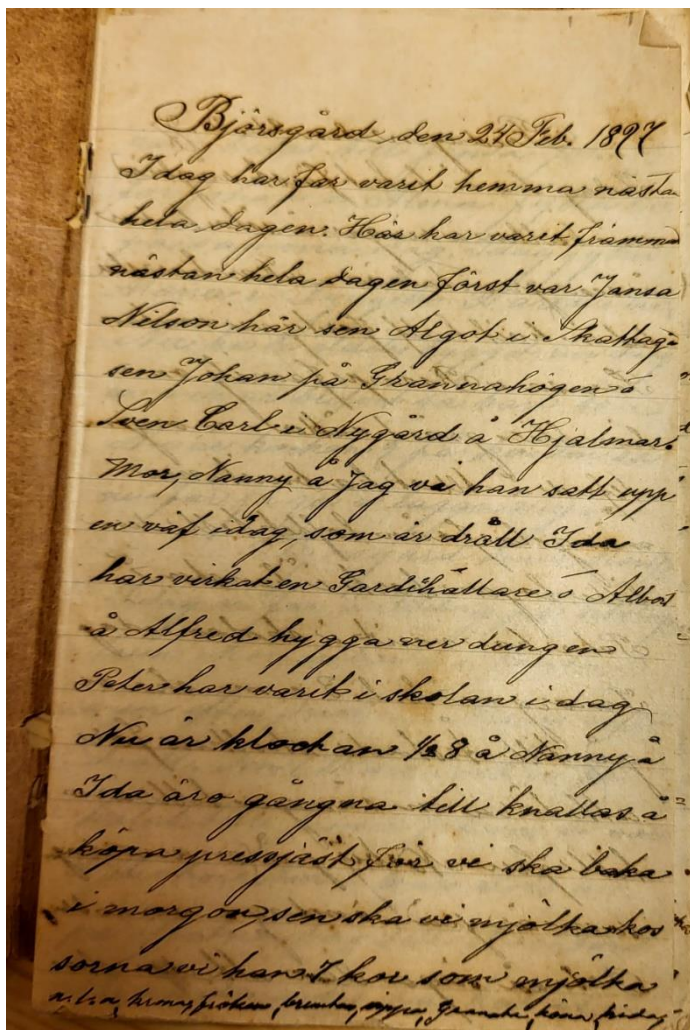 Björsgård den 24 Feb. 1897
I dag har far varit hemma nästan
hela dagen. Här har varit främma
nästan hela dagen först var Jänsa
Nilson här sen Algot i Skattag
sen Johan på Grannahögen ö
Sven Carl i Nygård å Hjalmar.
Mor, Nanny å Jag vi han satt upp
en väf idag, som är dräll Ida
har virkat en Gardihållare ö Albot
å Alfred hygga ner dungen
Peter har varit i skolan i dag
Nu är klockan ½ 8 å Nanny å
Ida äro gångna till knallas å
köpa pressjäst för vi ska baka
i morgon, sen ska vi mjölka kos
sorna vi han 7 kor som mjölka
fröken,